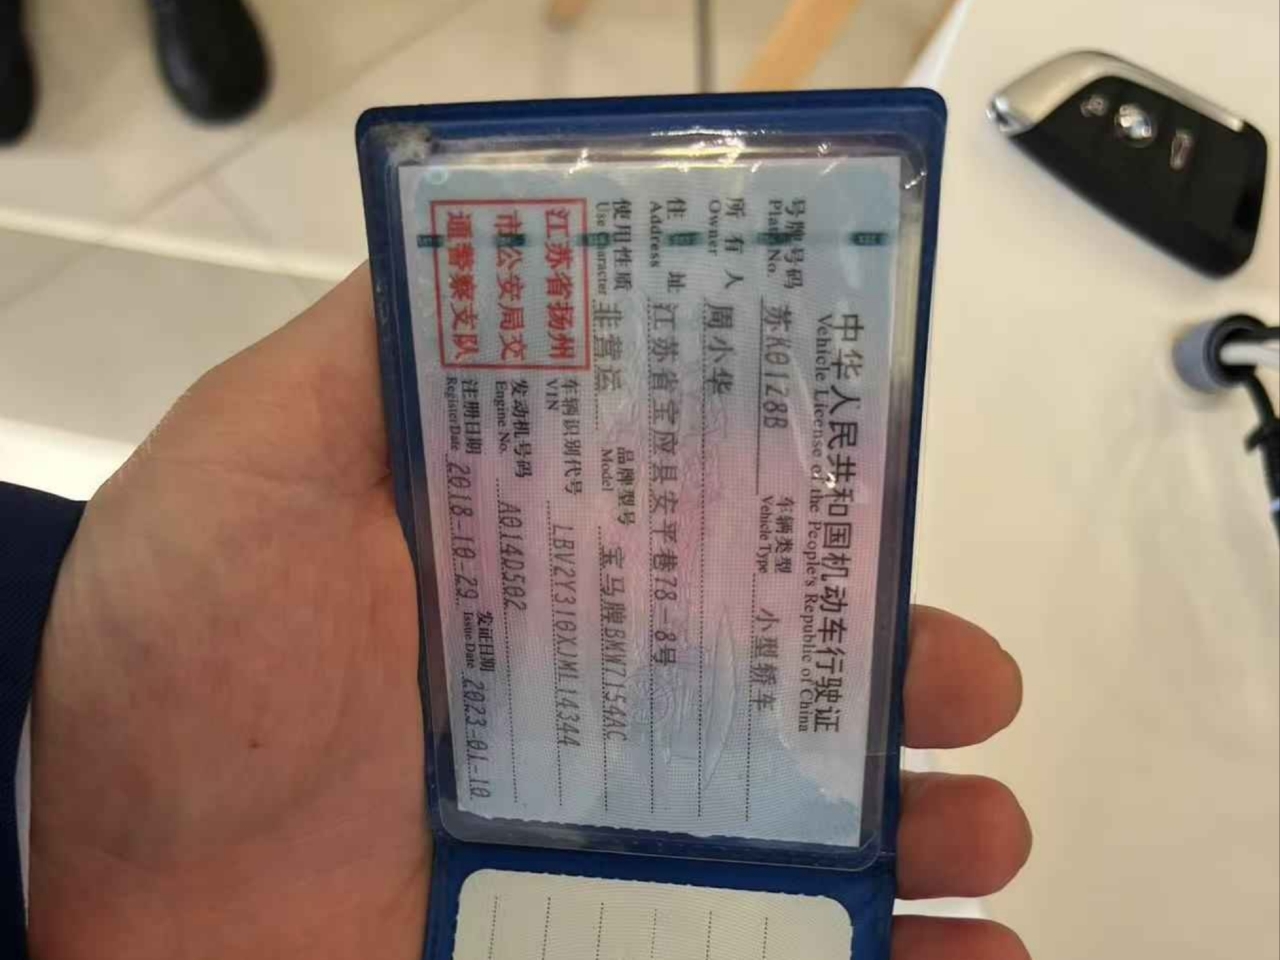 中华人民共和国机动车行驶证
Vehicle License of the People's Republic of China
号牌号码 苏K0128B 车辆类型 小型轿车
Plate No. Vehicle Type
所有人 周小华
Owner
住址 江苏省宝应县安平巷78-8号
Address
使用性质 非营运 品牌型号 宝马牌BMW7154AC
Use Character Model
江苏省扬州
市公安局交
通警察支队
车辆识别代号 LBV2Y310XJML14344
VIN
发动机号码 A014D502
Engine No.
注册日期 2018-10-29 发证日期 2023-01-10
Register Date Issue Date